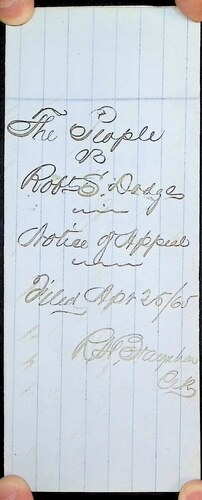 The People
vs
Robt S. Dodge
Notice of Appeal
Filed Apr 25/65
Clk